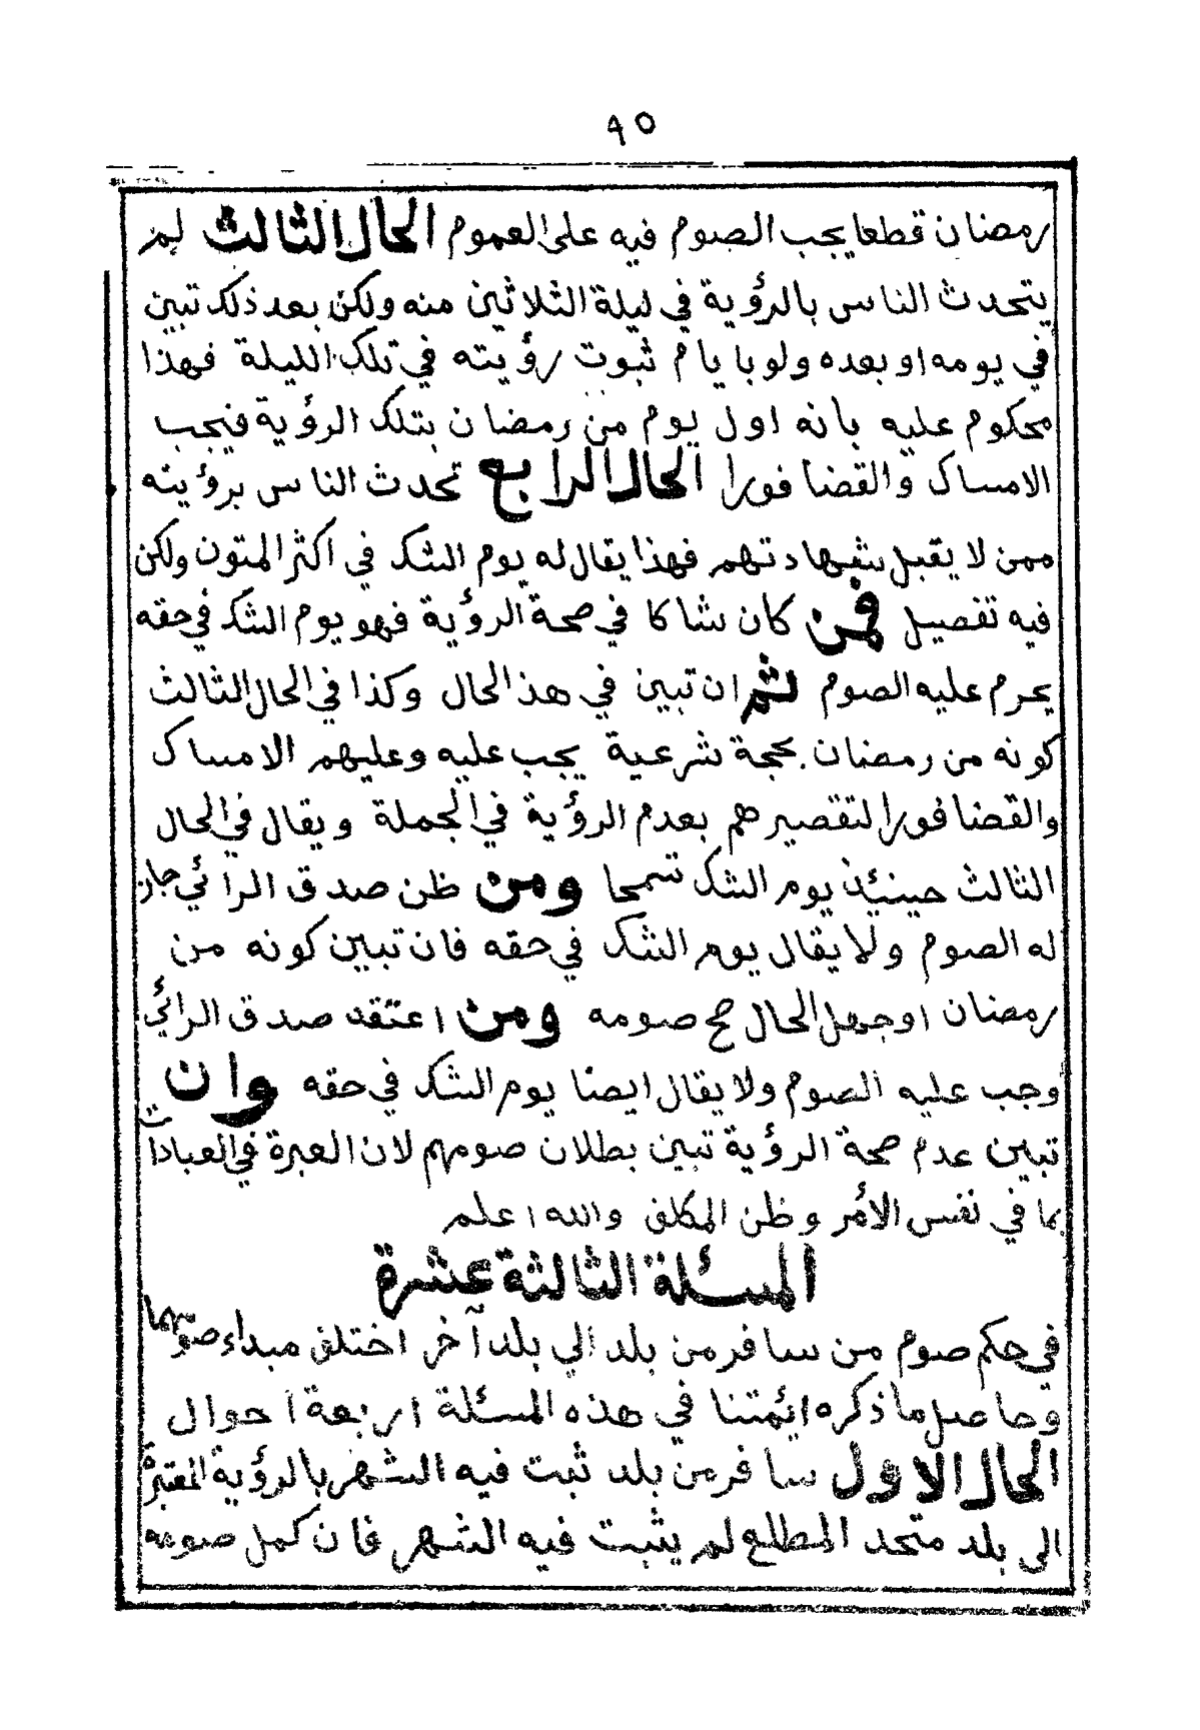 ٩٥
رمضان قطعا يجب الصوم فيه على العموم الحال الثالث لم
يتحدث الناس بالرؤية في ليلة الثلاثين منه ولكن بعد ذلك تبين
في يومه او بعده ولو بايام ثبوت رؤيته في تلك الليلة فهذا
محكوم عليه بانه اول يوم من رمضان بتلك الرؤية فيجب
الامساك والقضا فورا الحال الرابع تحدث الناس برؤيته
ممن لا يقبل شهادتهم فهذا يقال له يوم الشك في أكثر المتون ولكن
فيه تفصيل فمن كان شاكا في صحة الرؤية فهو يوم الشك في حقه
يحرم عليه الصوم ثم ان تبين في هذ الحال وكذا في الحال الثالث
كونه من رمضان بحجة شرعية يجب عليه وعليهم الامساك
والقضا فورا لتقصيرهم بعدم الرؤية في الجملة ويقال في الحال
الثالث حينيئذ يوم الشك تسمحا ومن ظن صدق الرائي جاز
له الصوم ولا يقال يوم الشك في حقه فان تبين كونه من
رمضان اوجهل الحال صح صومه ومن اعتقد صدق الرائي
وجب عليه الصوم ولا يقال ايضا يوم الشك في حقه وان
تبين عدم صحة الرؤية تبين بطلان صومهم لان العبرة في العبادات
بما في نفس الأمر وظن المكلف والله اعلم
المسئلة الثالثة عشرة
في حكم صوم من سافر من بلد الي بلد آخر اختلف مبداء صومهما
وحاصل ما ذكره ائمتنا في هذه المسئلة اربعة احوال
الحال الاول سافر من بلد ثبت فيه الشهر بالرؤية المعتبرة
الى بلد متحد المطلع لم يثبت فيه الشهر فان كمل صومه